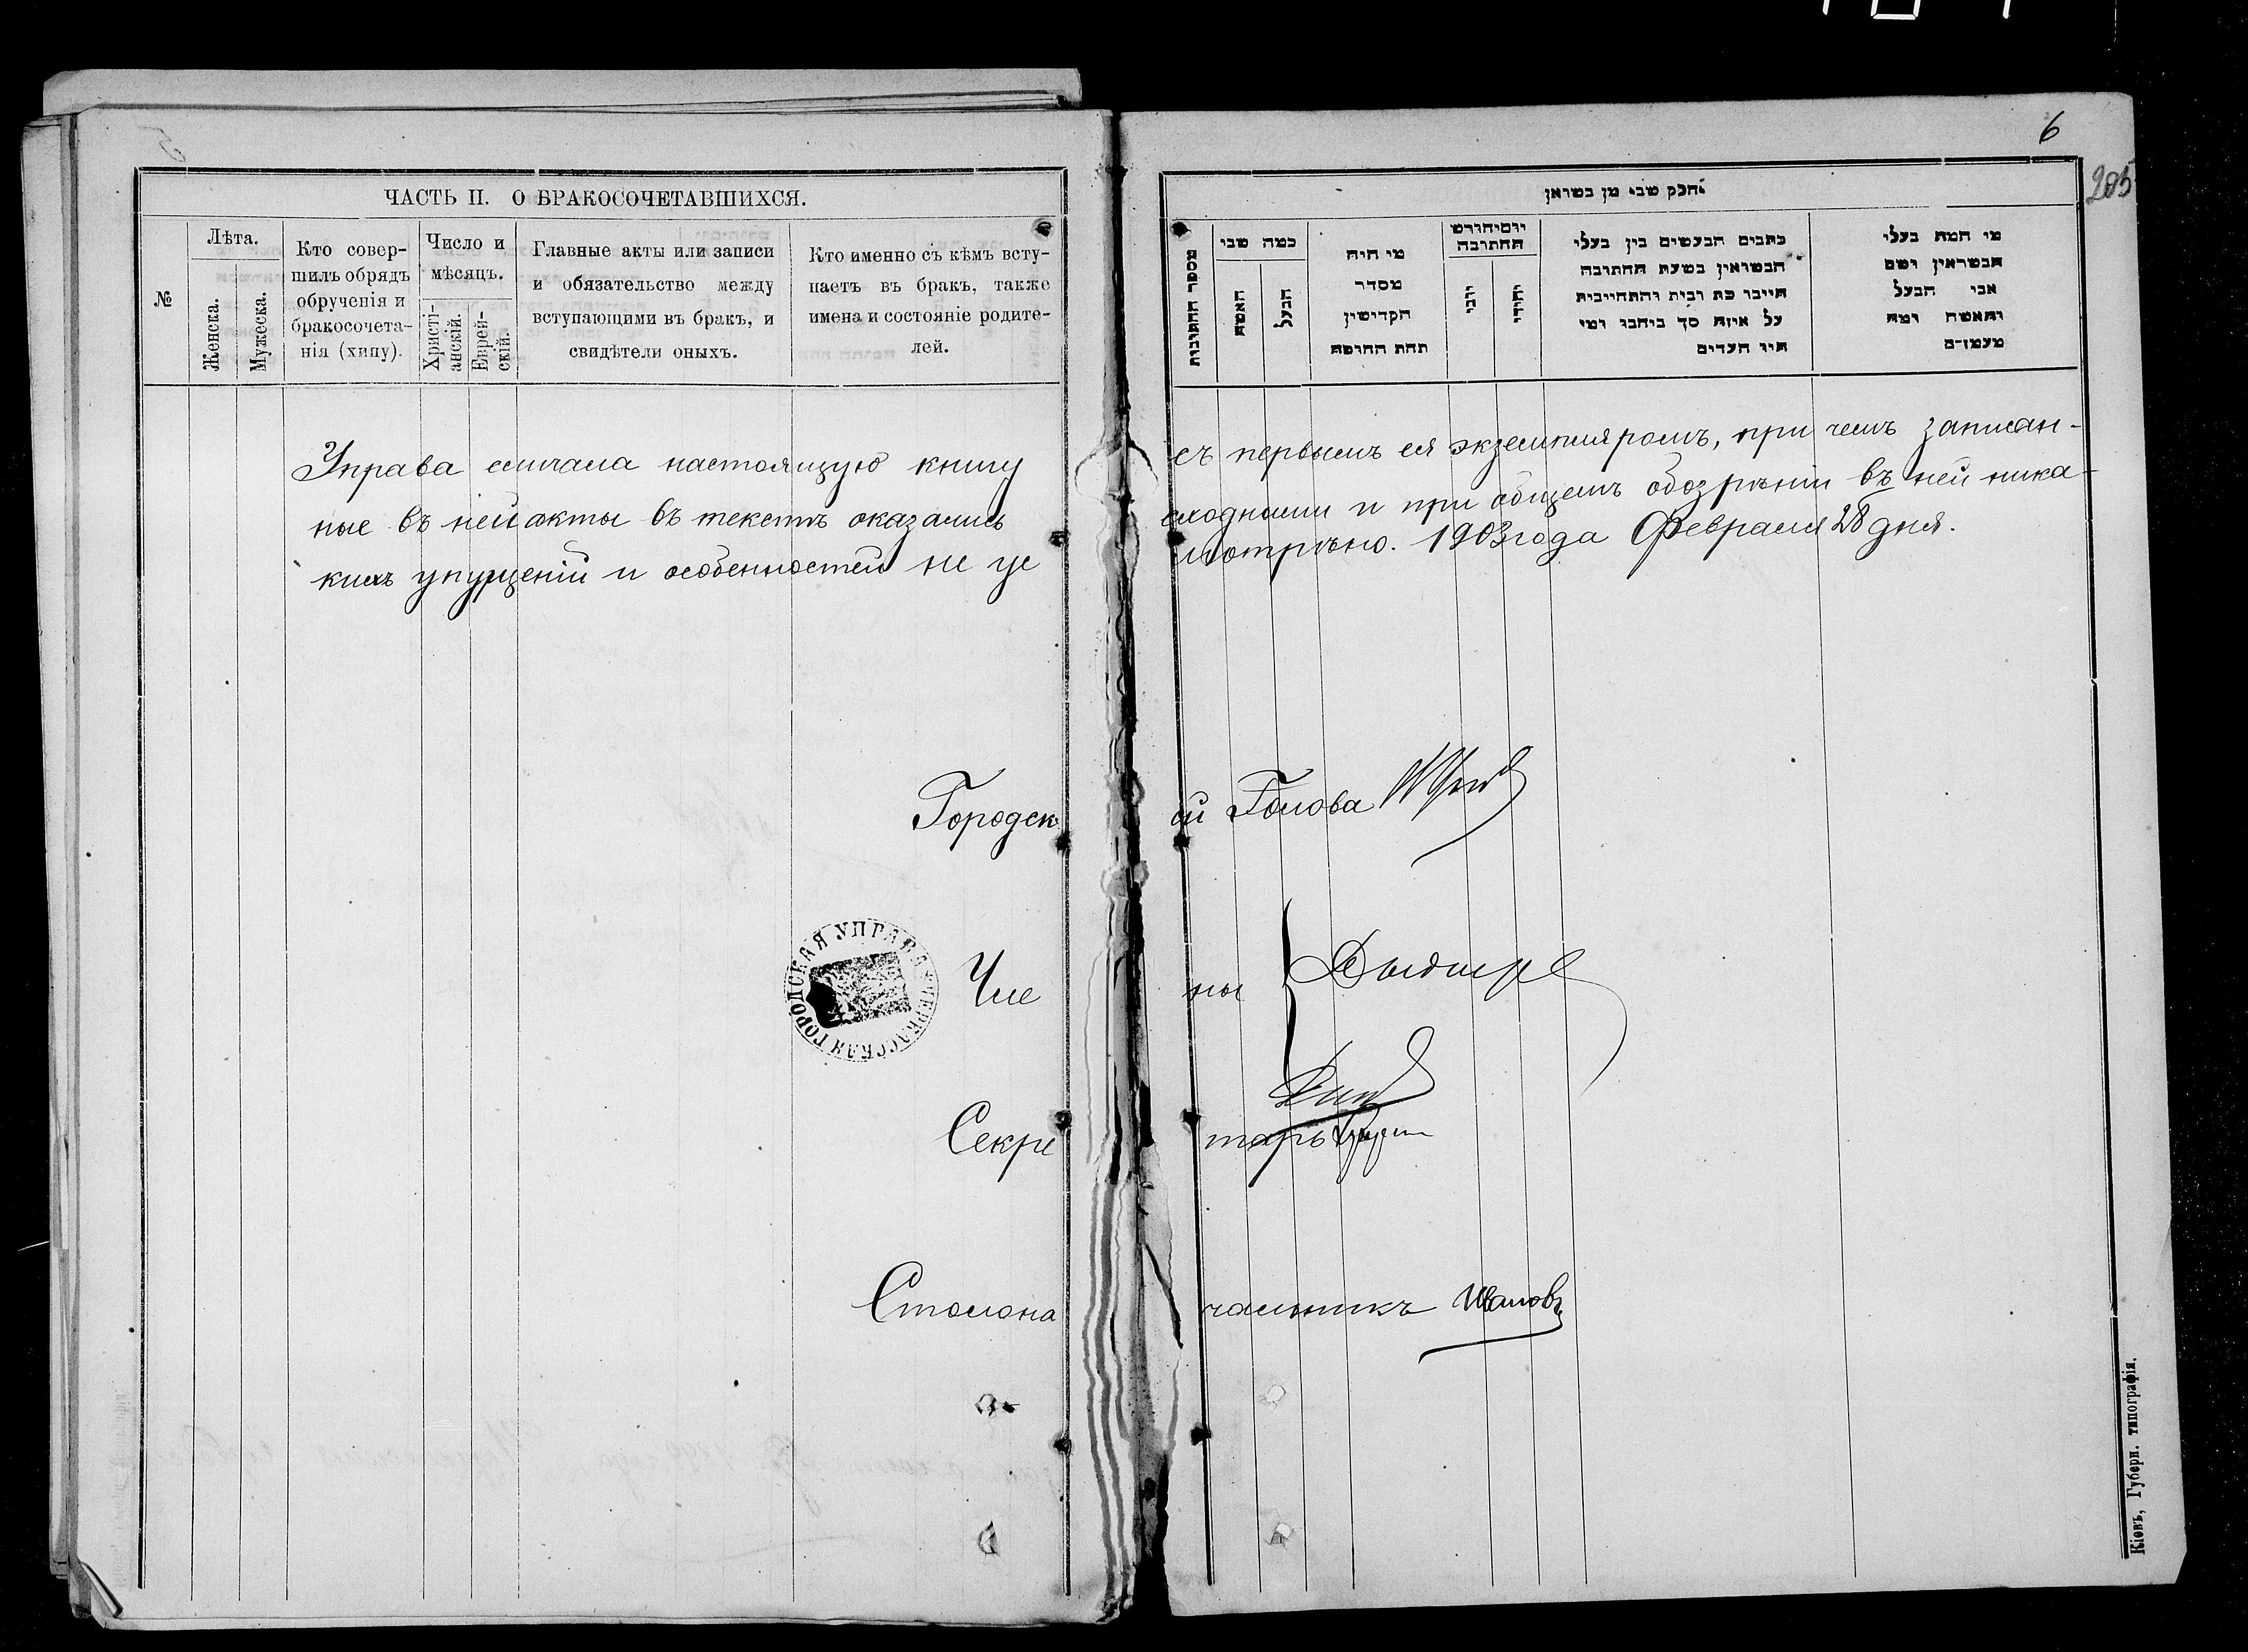 6
205
ЧАСТЬ II. О БРАКОСОЧЕТАВШИХСЯ.
№
Лѣта.
Женска.
Мужеска.
Кто совер-
шилъ обрядъ
обрученія и
бракосочета-
нія (хипу).
Число и
мѣсяцъ.
Христі-
анскій.
Еврей-
скій.
Главные акты или записи
и обязательство между
вступающими въ бракъ, и
свидѣтели оныхъ.
Кто именно съ кѣмъ всту-
паетъ въ бракъ, также
имена и состояніе родите-
лей.
חלק שני מן נשואין
מספר החתונות
כמה שני
האשה
הבעל
מי היה
מסדר
הקדישין
תחת החופה
יום וחודש
החתונה
יהודי
כתבים הנעשים בין בעלי
הנשואין בשעת החתונה
היינו כת ובית והתחייבות
על איזה סך ביניהם ומי
היו העדים
מי המה בעלי
הנשואין ושם
אבי הבעל
והאשה ומה
מעמדם
Управа сличала настоящую книгу съ первымъ ея экземпляромъ, при чемъ записан-
ные въ ней акты въ текстѣ оказались сходными и при общемъ обозрѣніи въ ней ника-
кихъ упущеній и особенностей не усмотрѣно. 1903 года Февраля 28 дня.
Городской Голова
Члены
ЧЕРКАССКАЯ ГОРОДСКАЯ УПРАВА
Секретарь
Столоначальникъ Ивановъ
Кіевъ, Губерн. типографія.